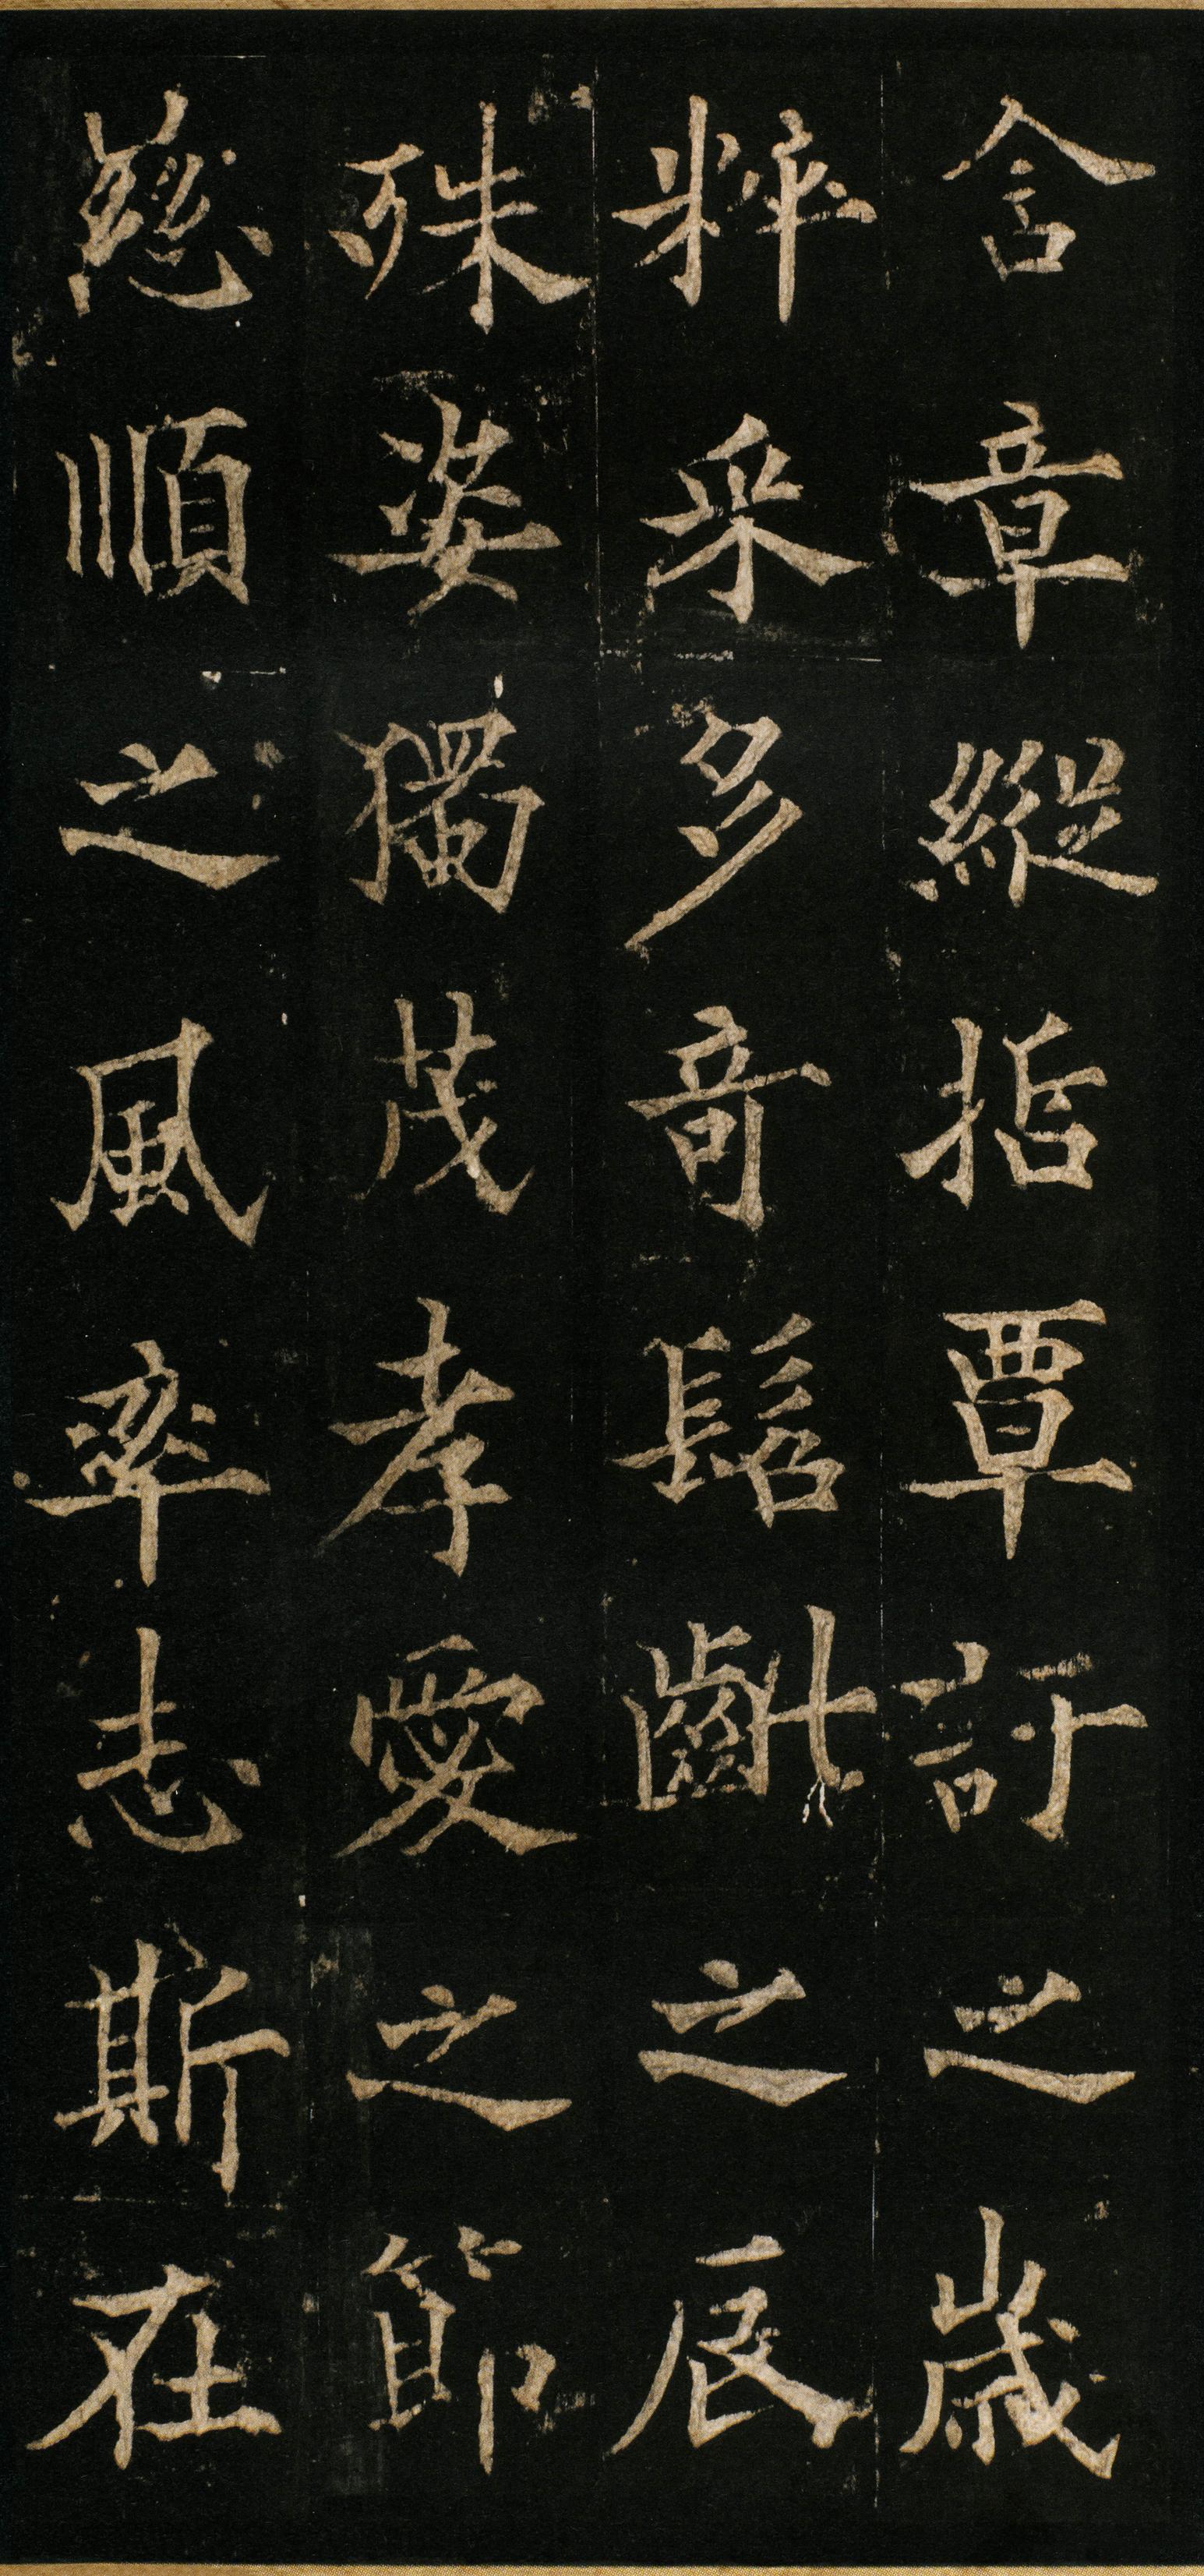 含章縱指覃訏之歲
粹采多奇髫齔之辰
殊姿獨茂孝愛之節
慈順之風率志斯在